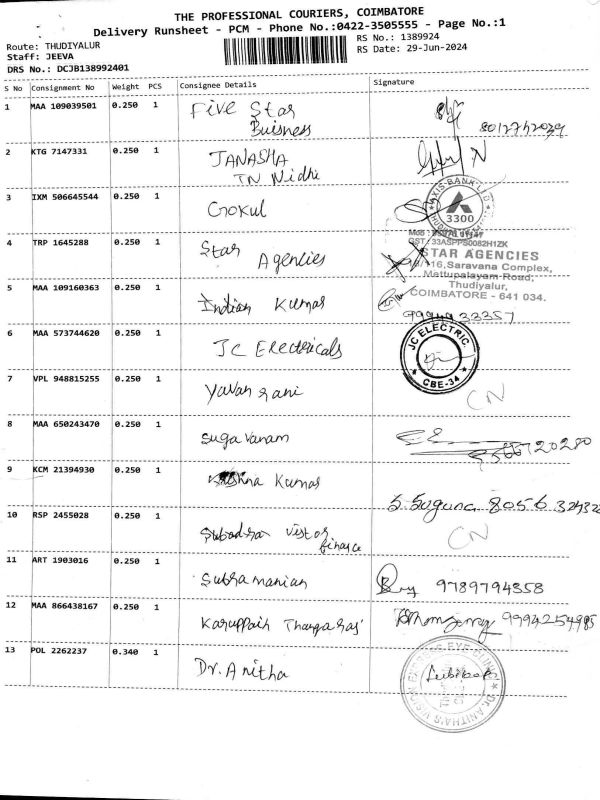 THE PROFESSIONAL COURIERS, COIMBATORE
Delivery Runsheet - PCM - Phone No.:0422-3505555 - Page No.:1
Route: THUDIYALUR
RS No.: 1389924
Staff: JEEVA
RS Date: 29-Jun-2024
DRS No.: DCJB138992401
S No Consignment No Weight PCS Consignee Details Signature
1 MAA 109039501 0.250 1 Five Star
Buisness
8012742039
2 KTG 7147331 0.250 1 JANASHA
TN Nidhi
3 IXM 506645544 0.250 1 Gokul
AXIS BANK LTD
3300
4 TRP 1645288 0.250 1 Star
Agencies
GST: 33ASPPS0082H1ZK
STAR AGENCIES
Saravana Complex,
Mettupalayam Road,
Thudiyalur,
COIMBATORE - 641 034.
5 MAA 109160363 0.250 1 Indian Kumar
6 MAA 573744620 0.250 1 JC Electricals
JC ELECTRIC
CBE-34
7 VPL 948815255 0.250 1 Yavan rani
CN
8 MAA 650243470 0.250 1 Suga Vanam
9 KCM 21394930 0.250 1 Krishna Kumar
S. Suguna 8056324322
10 RSP 2455028 0.250 1 Subadra vistar
finance
CN
11 ART 1903016 0.250 1 Subramanian
9789794358
12 MAA 866438167 0.250 1 Karuppaih Thangaraj
9994254985
13 POL 2262237 0.340 1 Dr. Anitha
Dr. ANITHA'S VISION EYE CLINIC